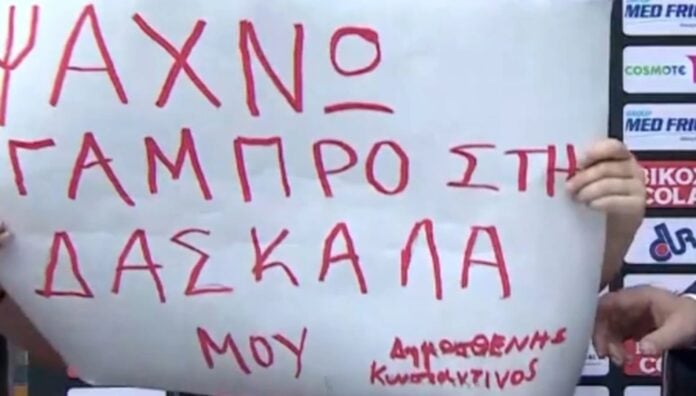 ΨΑΧΝΩ
ΓΑΜΠΡΟ ΣΤΗ
ΔΑΣΚΑΛΑ
ΜΟΥ
ΔημοσΘΕΝΗΣ
ΚωνσταντΙΝΟς
GROUP
MED FRI
COSMOTE
GROUP
MED FRI
ΒΙΚΟΣ
COLA